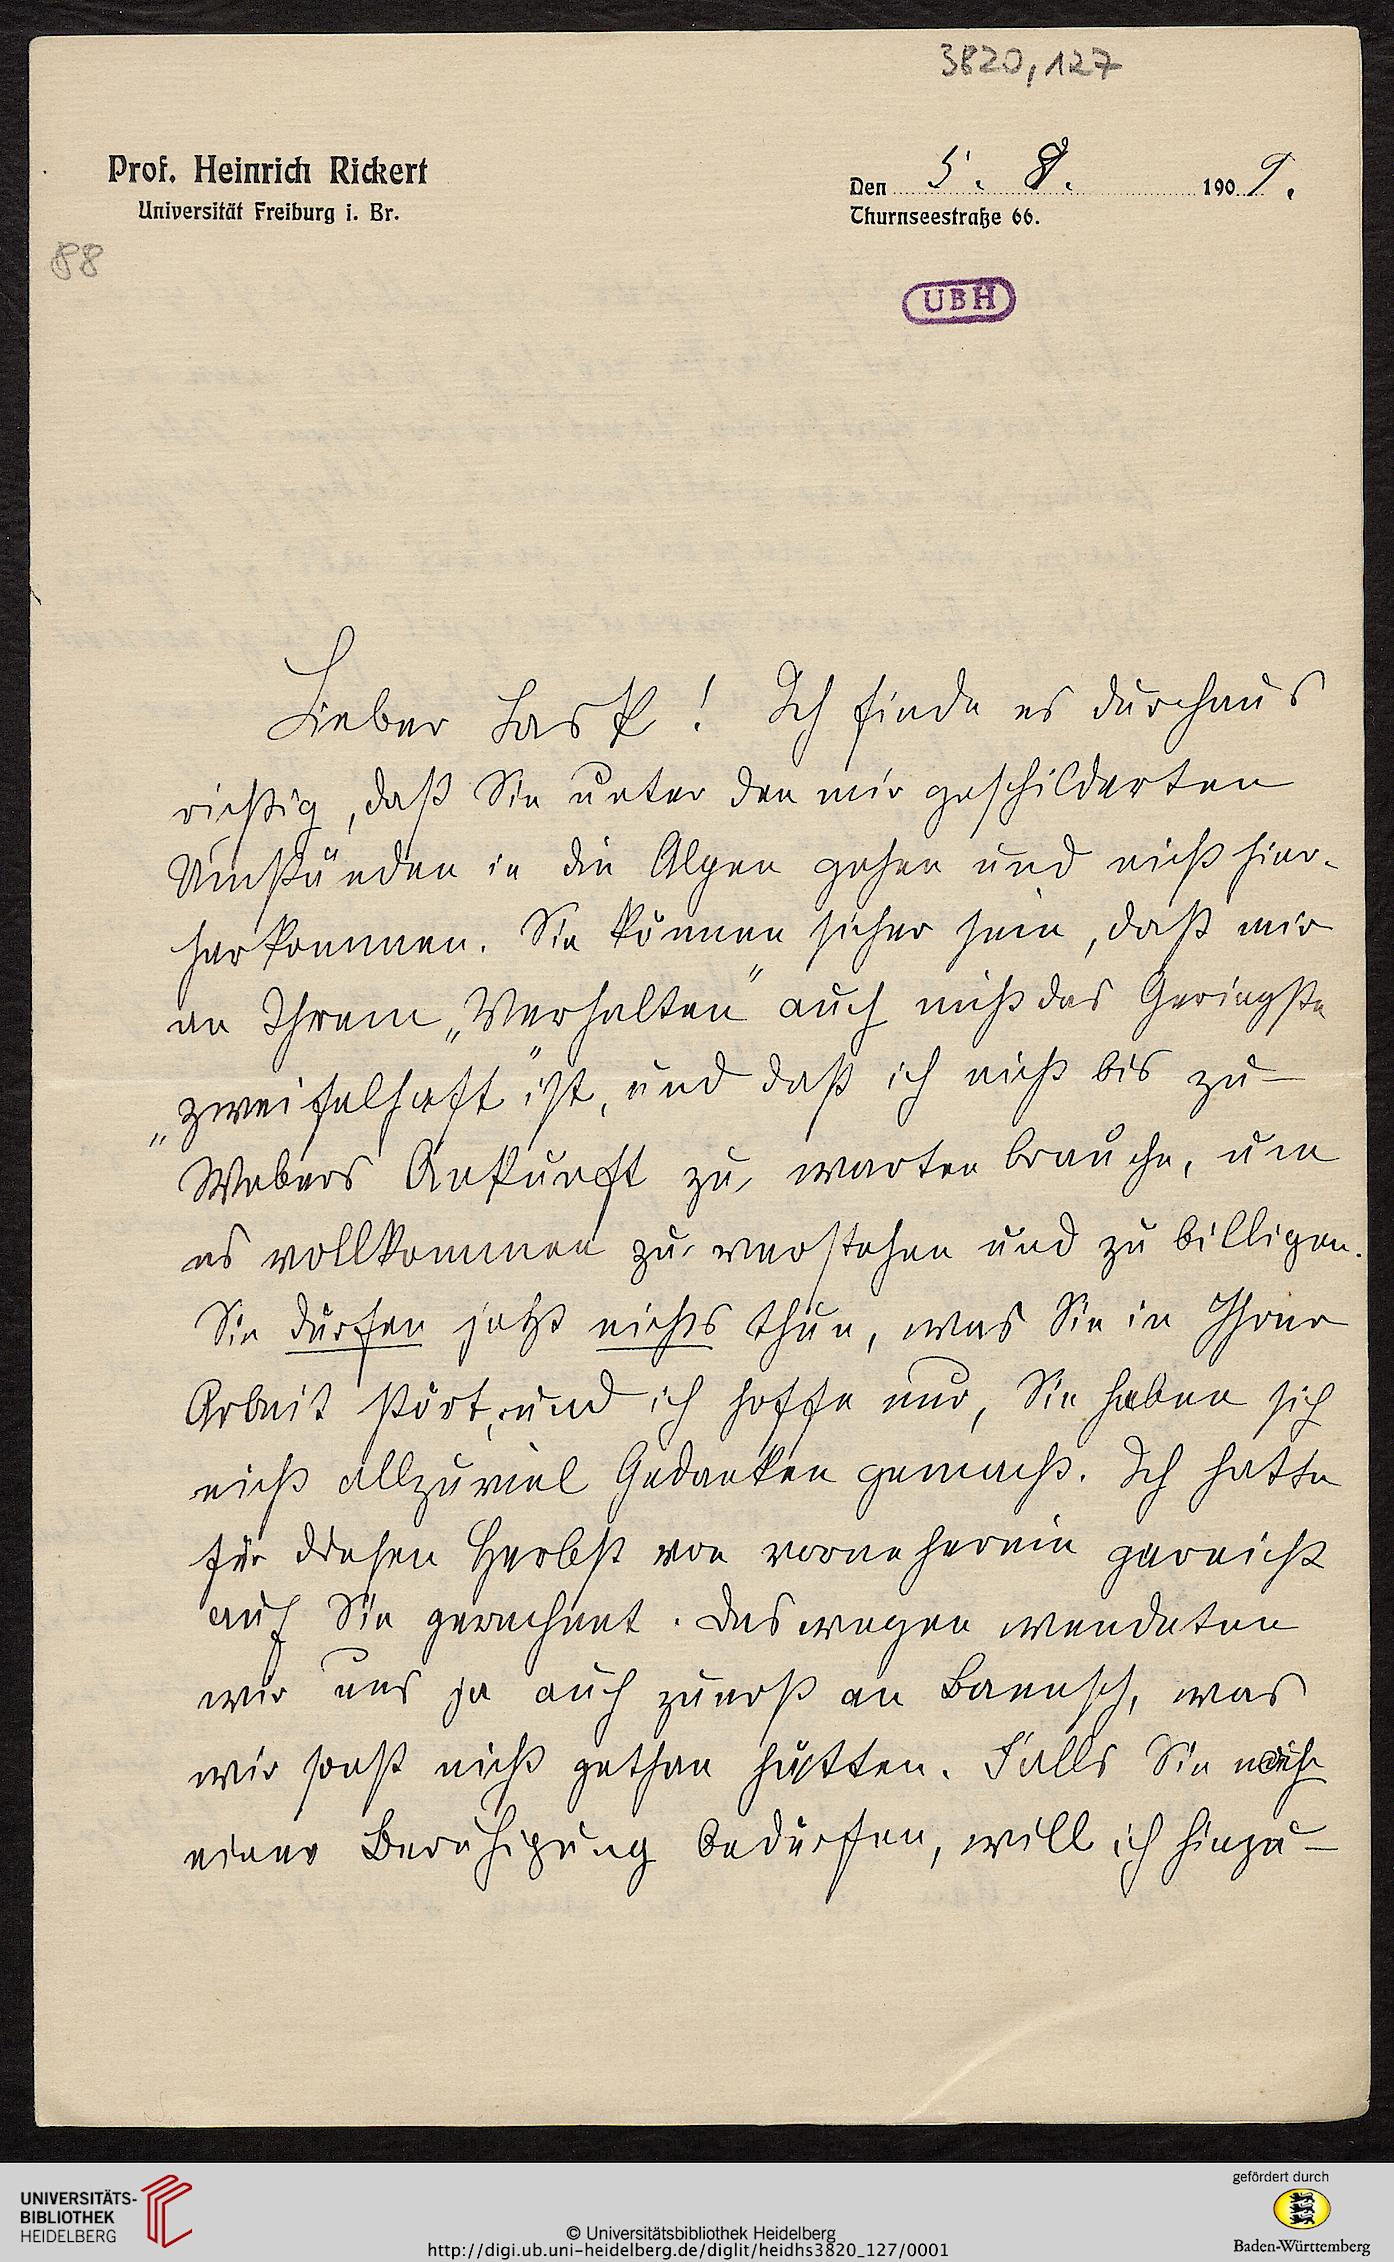 3820,127
Prof. Heinrich Rickert
Universität Freiburg i. Br.
Den 5. 8. 1909.
Thurnseestraße 66.
88
UBH
Lieber Lask! Ich finde es durchaus
richtig, daß Sie unter den mir geschilderten
Umständen in die Alpen gehen und nicht hier-
herkommen. Sie können sicher sein, daß mir
an Ihrem „Verhalten" auch nicht das Geringste
„zweifelhaft" ist, und daß ich nicht bis zu
Webers Ankunft zu warten brauche, um
es vollkommen zu verstehen und zu billigen.
Sie dürfen jetzt nichts thun, was Sie in Ihrer
Arbeit stört, und ich hoffe nur, Sie haben sich
nicht allzuviel Gedanken gemacht. Ich hatte
für diesen Herbst von vorneherein garnicht
auf Sie gerechnet. Deswegen wendeten
wir uns ja auch zuerst an Baensch, was
wir sonst nicht gethan hätten. Falls Sie noch
einer Beruhigung bedürfen, will ich hinzu-
UNIVERSITÄTS-
BIBLIOTHEK
HEIDELBERG
© Universitätsbibliothek Heidelberg
http://digi.ub.uni-heidelberg.de/diglit/heidhs3820_127/0001
gefördert durch
Baden-Württemberg